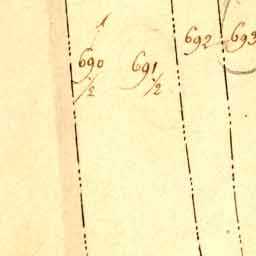 690 1/2
691 1/2
692
693